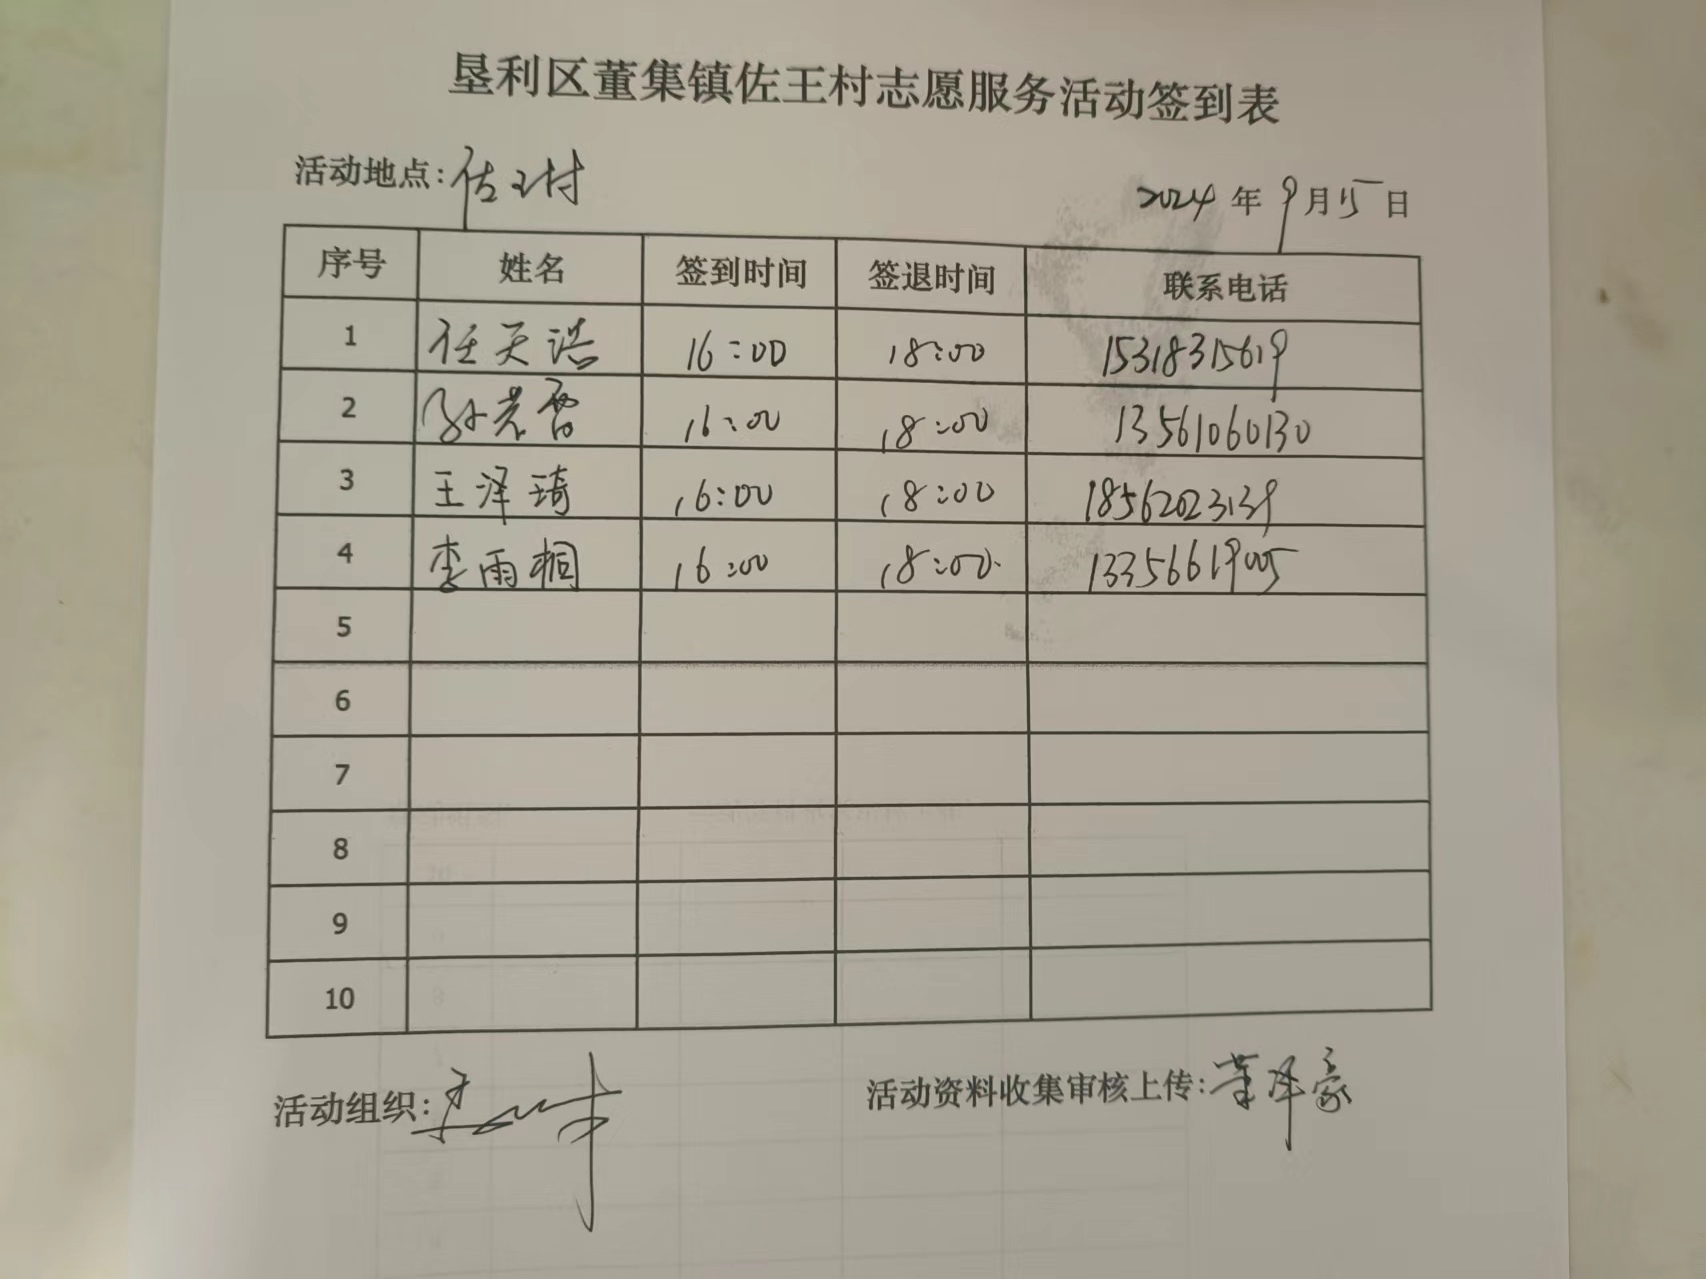 垦利区董集镇佐王村志愿服务活动签到表
活动地点：佐王村 2024年9月15日
序号 姓名 签到时间 签退时间 联系电话
1 任天浩 16:00 18:00 15318315619
2 16:00 18:00 13561060130
3 王泽琦 16:00 18:00 18562023139
4 李雨桐 16:00 18:00 13356619005
5
6
7
8
9
10
活动组织： 活动资料收集审核上传：董泽豪